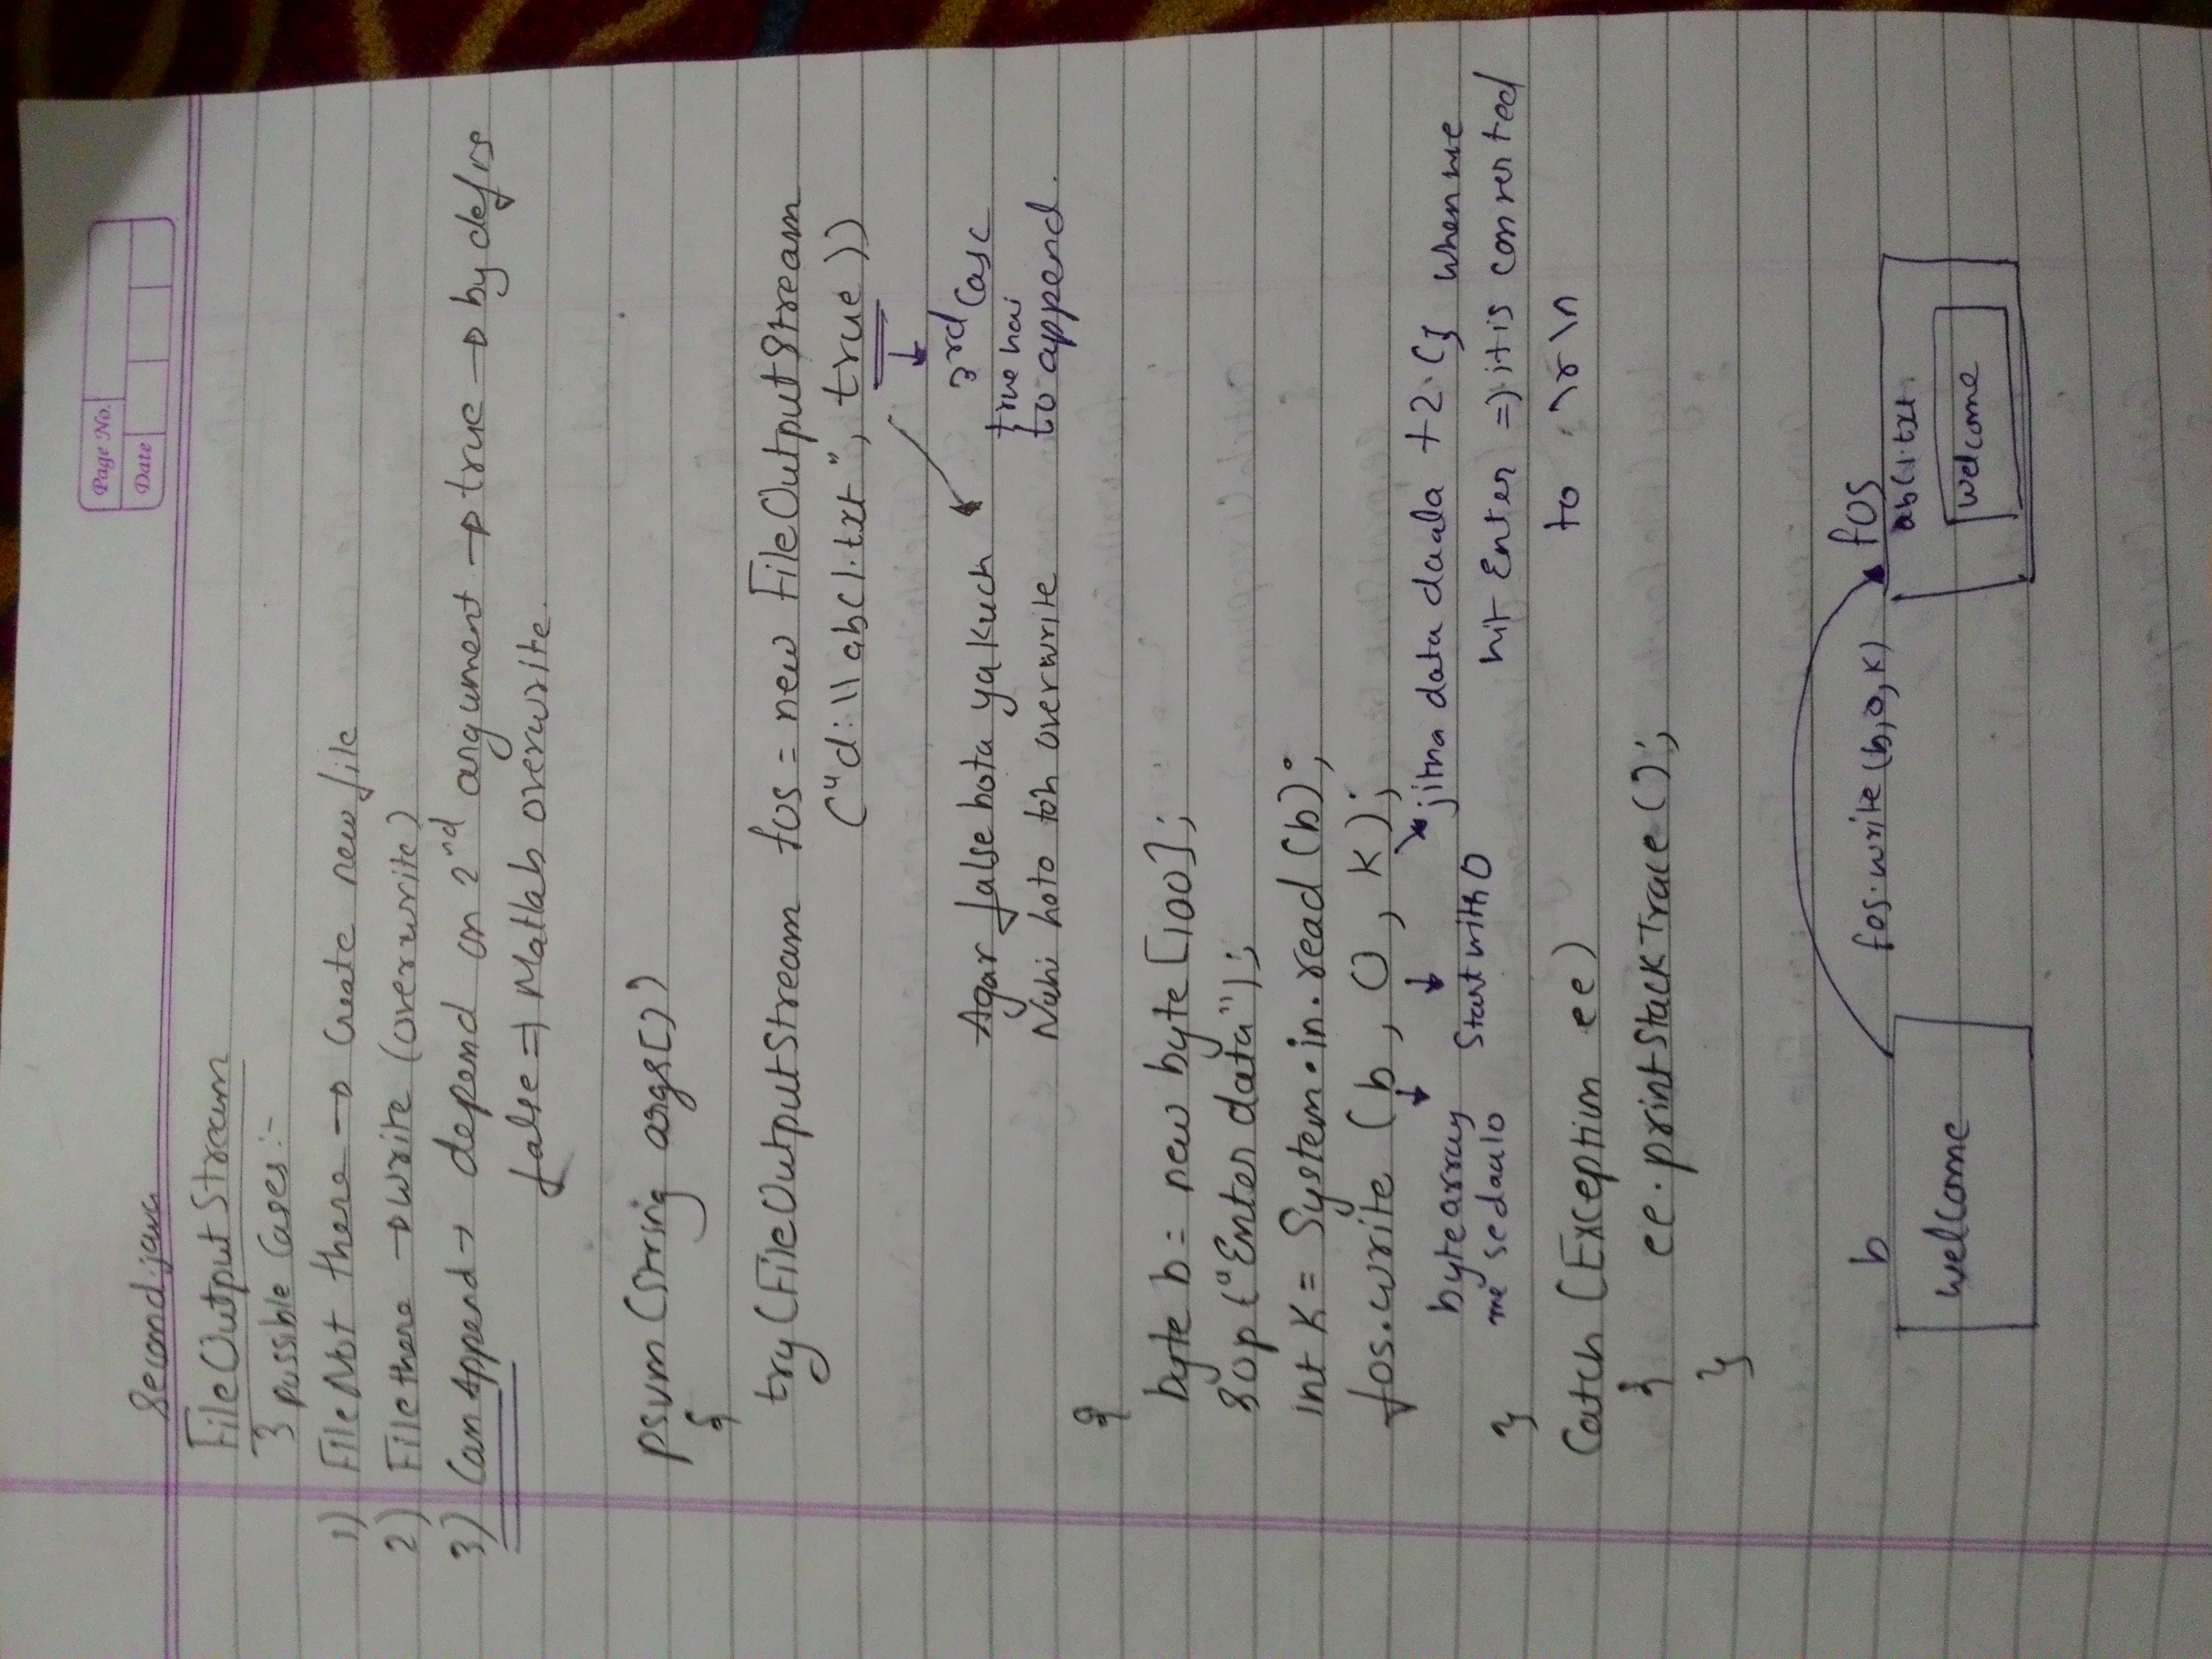 Page No.
Date
Second.java
FileOutputStream
3 possible Cases :-
1) File Not there → Create new file
2) File there → write (overwrite)
3) Can Append → depend on 2nd argument → true → by def is
false => Matlab overwrite.
psvm (String args[])
{
try (FileOutputStream fos = new FileOutputStream
("d:\\abc1.txt", true))
Agar false hota ya kuch
3rd Case
true hai
Nahi hoto toh overwrite
to append.
{
byte b = new byte [100];
Sop ("Enter data");
int K = System.in.read (b);
fos.write (b, 0, K);
byte array
me se daalo
Start with 0
jitna data daala +2. (; when we
hit Enter => it is converted
to \r\n
}
Catch (Exception ee)
{ ee.printStackTrace ();
}
b
fos.write (b,0,K)
fos
abc1.txt.
welcome
welcome